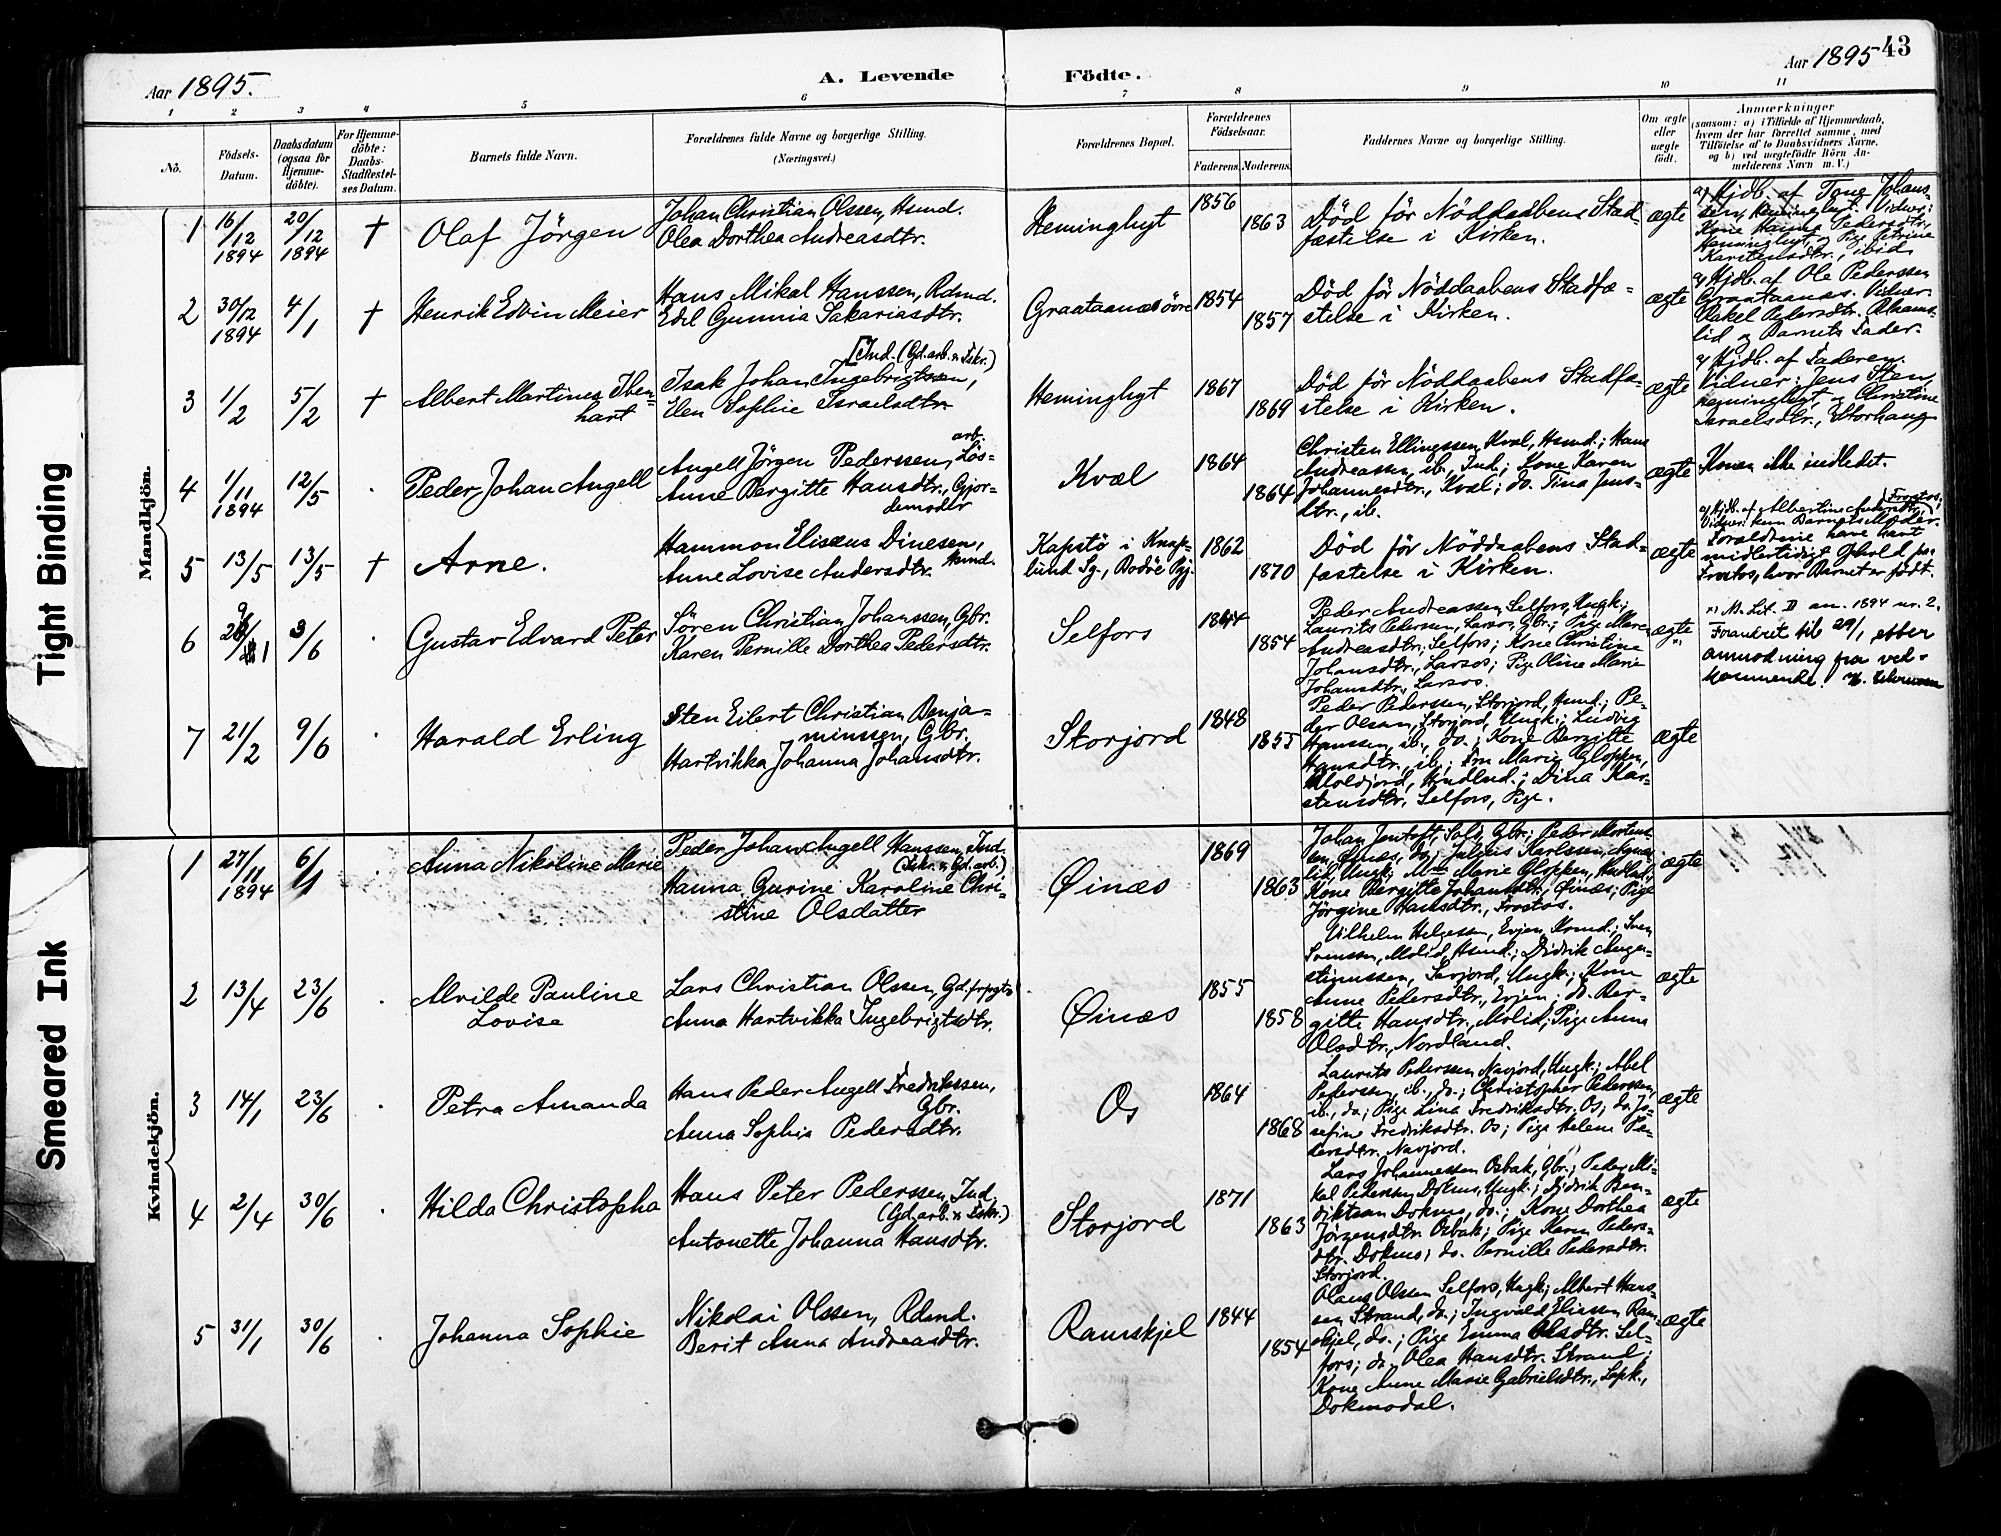 Tight Binding
Smeared Ink
Aar 1895.
A. Levende
Födte.
Aar 1895
43
1 2 3 4 5 6 7 8 9 10 11
No.
Födsels-
Datum.
Daabsdatum
(ogsaa for
Hjemme-
döbte).
For Hjemme-
döbte:
Daabs-
Stadfæstel-
ses Datum.
Barnets fulde Navn.
Forældrenes fulde Navne og borgerlige Stilling.
(Næringsvei.)
Forældrenes Bopæl.
Forældrenes
Födselsaar.
Faderens.
Moderens.
Faddernes Navne og borgerlige Stilling.
Om ægte
eller
uægte
födt.
Anmærkninger
(saasom: a) i Tilfælde af Hjemmedaab,
hvem der har forrettet samme, med
Tilföielse af to Daabsvidners Navne,
og b) ved uægtefödte Börn An-
melderens Navn m. V.)
Mandkjön.
1
16/12
1894
20/12
1894
†
Olaf Jörgen
Johan Christian Olssen, Husmd.
Olea Dorthea Andreasdtr.
Heminghyt
1856
1863
Död för Nöddaabens Stad-
fæstelse i Kirken.
ægte
a) Hjdb. af Tone Johans-
sen, Heminghyt. Vidner:
Kone Hanna Pedersdtr.,
Heminghyt, og Pige Petrine
Karstensdtr., ibid.
2
30/12
1894
4/1
†
Henrik Edvin Meier
Hans Mikal Hanssen, Rdmd.
Edel Gunnia Sakariasdtr.
Graataanæs övre
1854
1857
Död för Nöddaabens Stadfæ-
stelse i Kirken.
ægte
a) Hjdb. af Ole Pederssen
Graataanæs. Vidner:
Rakel Pedersdtr.
lid og Barnets Fader.
3
1/2
5/2
†
Albert Martines Iben-
hart
[Ind. (Gd. arb. & Fskr.)
Isak Johan Ingebrigtssen,
Elen Sophie Israelsdtr.
Heminghyt
1867
1869
Död för Nöddaabens Stadfæ-
stelse i Kirken.
ægte
a) Hjdb. af Faderen.
Vidner: Jens Sten,
Heminghyt, og Christine
Israelsdtr., Storhaug
4
1/11
1894
12/5
.
Peder Johan Angell
arb.
Angell Jörgen Pederssen, Lös-
Anne Bergitte Hansdtr., Gjor-
demoder
Kvæl
1864
1864
Christen Ellingssen, Kvæl, Husmd.; Hans
Andreassen, ib., Ind.; Kone Karen
Johannesdtr., Kvæl; do. Tina Jens-
dtr., ib.
ægte
Konen ikke indledet.
5
13/5
13/5
†
Arne.
Hammon Elisæus Dinesen,
Anne Lovise Andersdtr. Husmd.
Kapstö i Knap-
lund Sg., Bodöe Pgj.
1862
1870
Död för Nöddaabens Stad-
fæstelse i Kirken.
ægte
[Frostos;
a) Hjdb. af Albertine Andersdtr.,
Vidner: kun Barnets Moder.
Forældrene have havt
midlertidigt Ophold paa
Frostos, hvor Barnet er födt.
6
29/1
3/6
.
Gustav Edvard Peter
Sören Christian Johanssen, Gbr.
Karen Pernille Dorthea Pedersdtr.
Selfors
1844
1854
Peder Andreassen, Selfors, Ungk.;
Laurits Pedersen, Larsos, Gbr.; Pige Maren
Andreasdtr., Selfors; Kone Christine
Johansdtr., Larsos; Pige Oline Marie
Johansdtr., Larsos.
ægte
×)
×) M. Lit. D an. 1894 nr. 2.
Forandret til 29/1, efter
anmodning fra ved-
kommende.
7
21/2
9/6
.
Harald Erling
Sten Eilert Christian Benja-
minssen, Gbr.
Hartvikka Johanna Johansdtr.
Storjord
1848
1855
Peder Pederssen, Storjord, Husmd.; Pe-
der Olsen, Storjord, Ungk.; Ludvig
Hanssen, ib., do.; Kone Bergitte
Hansdtr., ib.; Fru Marie Glopken,
Moldjord, Hndlnd.; Dina Kar-
stensdtr., Selfors, Pige.
ægte
Kvindekjön.
1
27/11
1894
6/1
.
Anna Nikoline Marie
Peder Johan Angell Hanssen, Ind.
(Fskr. & Gd. arb.)
Hanna Gurine Karoline Chri-
stine Olsdatter
Öinæs
1869
1863
Johan Jentoft, Solö, Gbr.; Peder Mortens-
sen, Öinæs, do.; Julius Karlssen,
lid, Ungk.; Mme Marie Glopken,
Kone Bergitte Johansdtr., Öinæs; Pige
Jörgine Hansdtr., Frostos.
ægte
2
13/4
23/6
.
Alvilde Pauline
Lovise
Lars Christian Olssen, Gd. frpgt.
Anna Hartvikka Ingebrigtsdtr.
Öinæs
1855
1858
Vilhelm Helgessen, Evjen, Kmd.; Sven
Svenssen, Molid, Husmd.; Didrik Augu-
stinussen, Savjord, Ungk.; Kone
Anne Pedersdtr., Evjen; do. Ber-
gitte Hansdtr., Molid; Pige Anna
Olsdtr., Nordland.
ægte
3
14/1
23/6
.
Petra Amanda
Hans Peder Angell Fredrikssen,
Gbr.
Anna Sophia Pedersdtr.
Os
1864
1868
Laurits Pederssen Navjord, Ungk.; Abel
Pederssen, ib., do.; Christopher Pederssen,
ib., do.; Pige Lina Fredriksdtr. Os; do. Jo-
sefine Fredriksdtr. Os; Pige Helene Pe-
dersdtr. Navjord.
ægte
4
2/4
30/6
.
Hilda Christopha
Hans Peter Pederssen, Ind.
(Gd. arb. & Fskr.)
Antonette Johanna Hansdtr.
Storjord
1871
1863
Lars Johannessen Osbak, Gbr.; Peder Mi-
kal Pedersen Dokmo, Ungk.; Didrik Ben-
diktsen Dokmo, do.; Kone Dorthea
Jörgensdtr. Osbak; Pige Karen Peders-
dtr. Dokmo; do. Pernille Pedersdtr.
Storjord.
ægte
5
31/1
30/6
.
Johanna Sophie
Nikolai Olssen, Rdmd.
Berit Anna Andreasdtr.
Ramskjel
1844
1854
Olaus Olssen Selfors, Ungk.; Albert Hans-
sen Strand, do.; Ingvald Eliassen Ram-
skjel, do.; Pige Emma Olsdtr. Sel-
fors; do. Olea Hansdtr. Strand;
Kone Anne Marie Gabrielsdtr.,
Dokmodal.
ægte